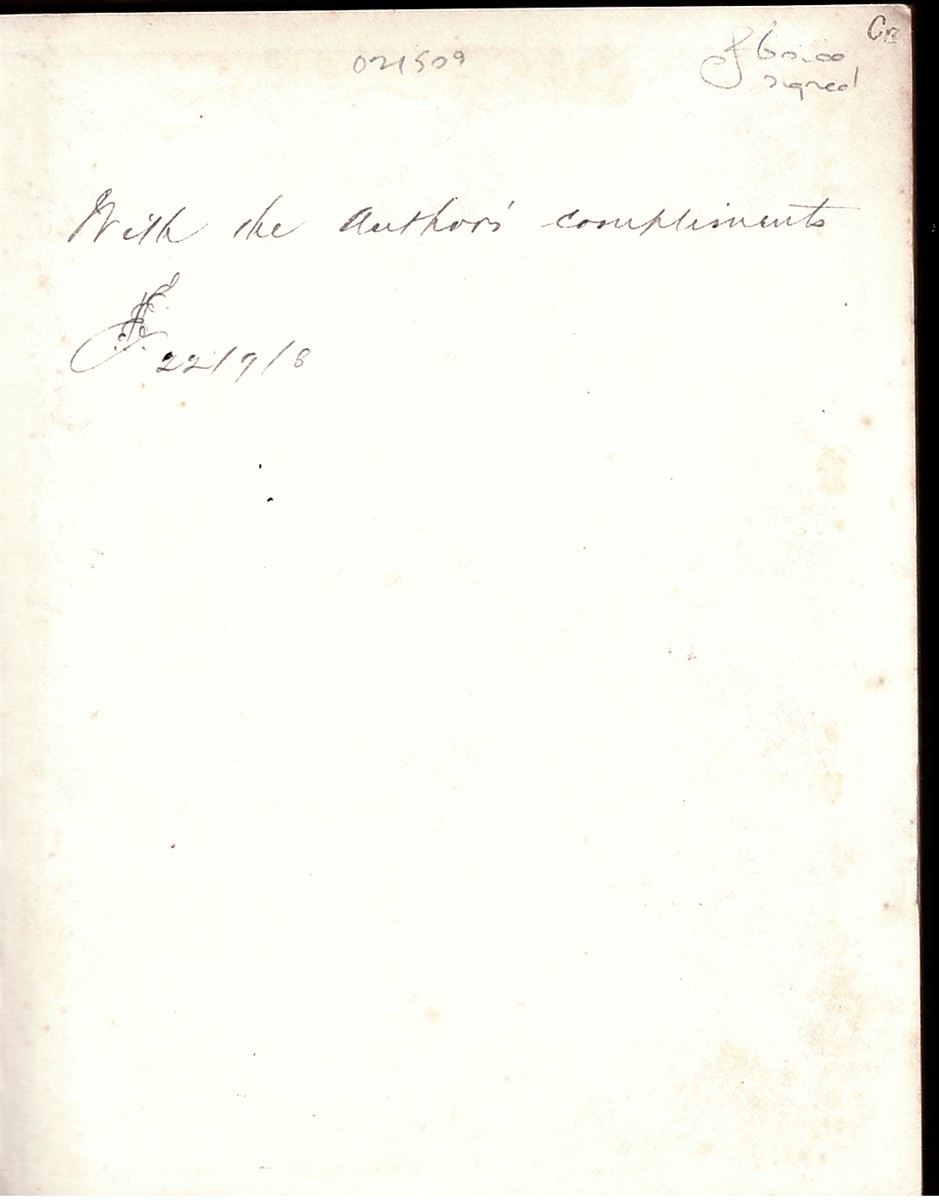 021509
60.00
signed
With the Author's compliments
22/9/8